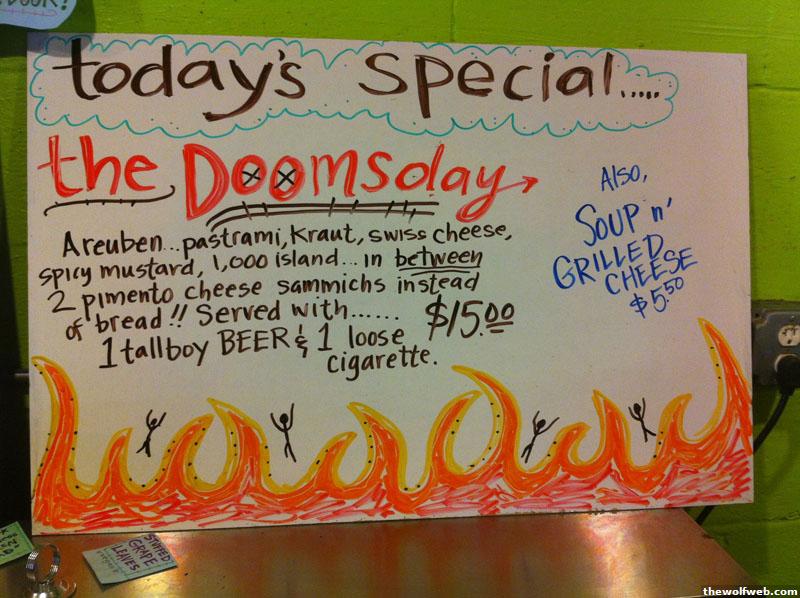 today's special.....
the Doomsday
A reuben... pastrami, Kraut, swiss cheese,
spicy mustard, 1,000 island... in between
2 pimento cheese sammichs instead
of bread!! Served with......
$15.00
1 tallboy BEER & 1 loose
cigarette.
Also,
Soup n'
GRILLED
CHEESE
$5.50
STUFFED
GRAPE
LEAVES
thewolfweb.com